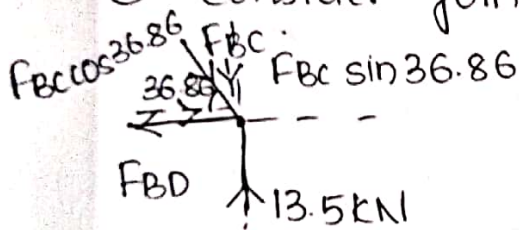 FBC cos 36.86
FBC.
36.86
FBC sin 36.86
FBD
13.5KN